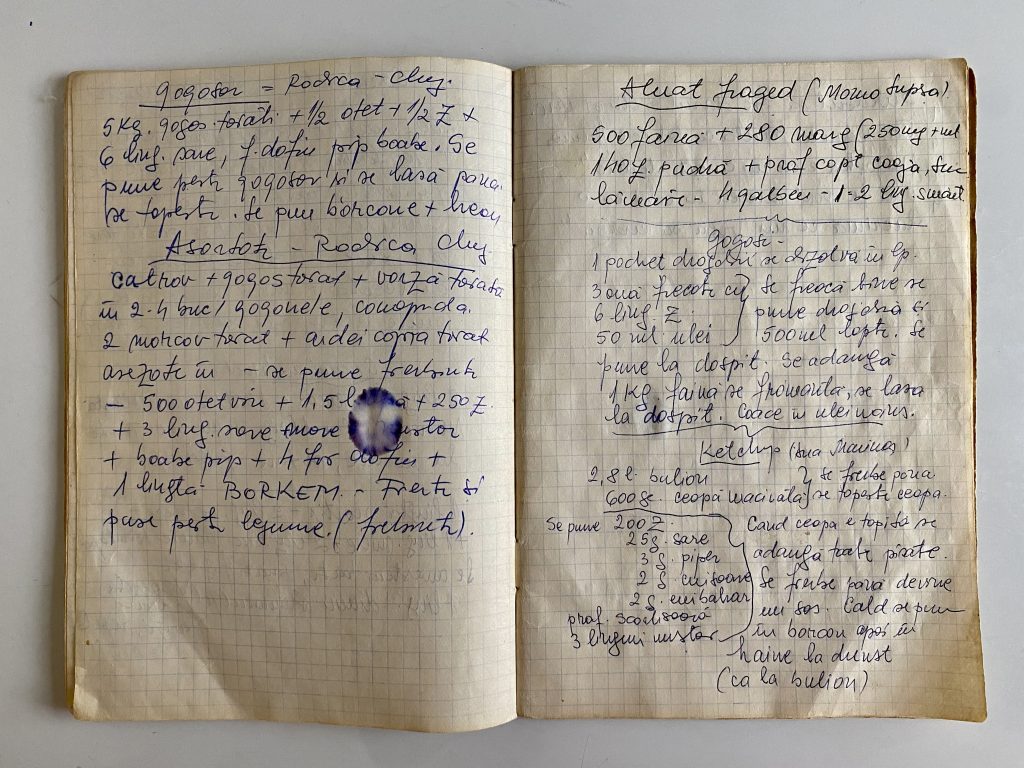 gogosor = Rodica - Cluj.
5 Kg. gogos. torăti + 1/2 otet + 1/2 Z +
6 ling. sare, f. dafin pip boabe. Se
pune peste gogosar si se lasă pana
se topeste. Se pun borcane +
Asortate - Rodica Cluj.
Catrav + gogos torat + varză torată
în 2-4 buc/ gogonele, conopida.
2 morcov torat + ardei capia torat
asezate în - se pune fierbinte
- 500 otet vin + 1,5 l + 250 Z.
+ 3 ling. sare mare
+ boabe pip + 4 foi dafin +
1 lingtă BORKEM. - Fierte si
puse peste legume. (fierbinte).
Aluat fraged (Momo Supra)
500 faină + 280 marg (250 mg + ml
140 z. pudră + praf copt coaja,
lămâie - 4 galben - 1-2 lng. smânt
gogosi -
1 pachet drojdie se dizolvă în lp.
3 ouă frecate cu
6 ling. Z.
50 ml ulei
Se freacă bine se
pune drojdia si
500 ml lapte. Se
pune la dospit. Se adaugă
1 Kg. faină se frământă, se lasă
la dospit. Coace in ulei
Ketchup (Ana Marina)
2,8 l. bulion
600 gr. ceapă macinată
se fierbe pana
se topeste ceapa.
Se pune 200 Z.
25 g. sare
3 g. piper
2 g. cuisoare
2 g. enibahar
praf. scortisoară
3 linguri mustar
Cand ceapa e topită se
adaugă toate pisate.
Se fierbe pană devine
un sos. Cald se pun
în borcan apoi în
haine la dunst
(ca la bulion)